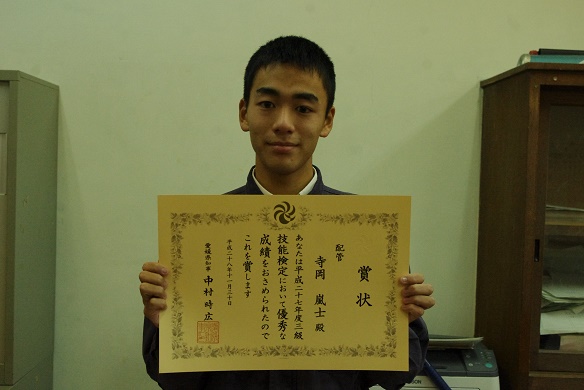 賞状
配管
寺岡 嵐士 殿
あなたは平成二十七年度三級
技能検定において優秀な
成績をおさめられたので
これを賞します
平成二十八年十一月二十日
愛媛県知事 中村時広